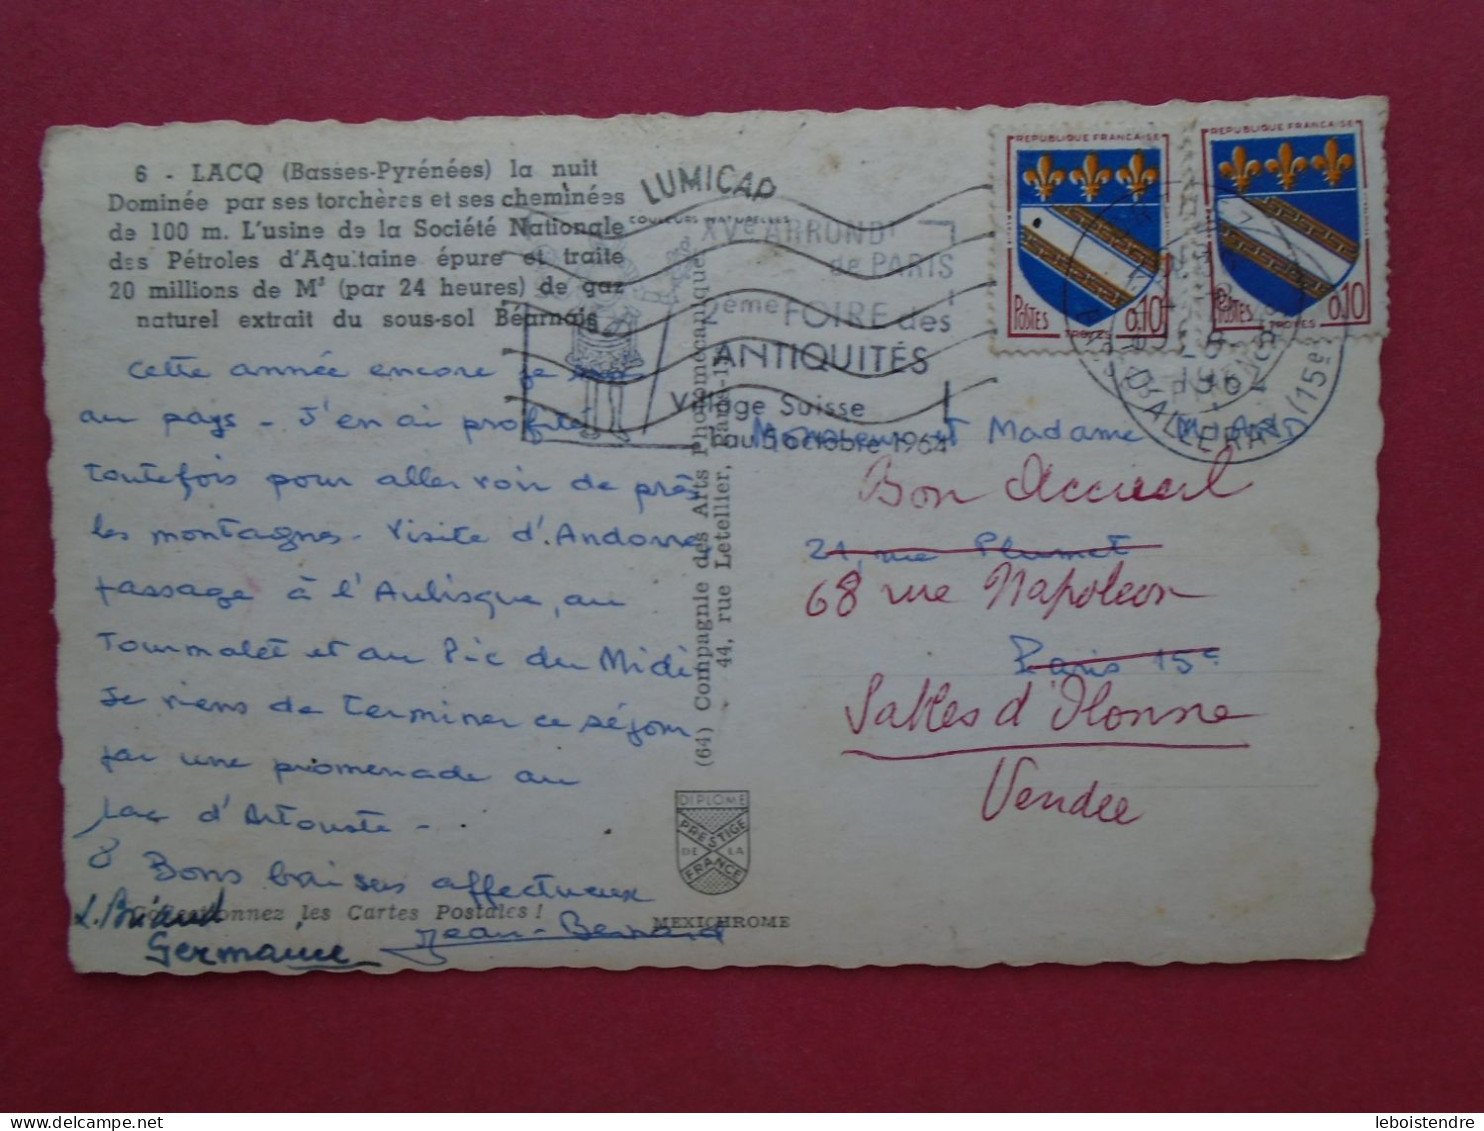 6 - LACQ (Basses-Pyrénées) la nuit
Dominée par ses torchères et ses cheminées
de 100 m. L'usine de la Société Nationale
des Pétroles d'Aquitaine épure et traite
20 millions de M³ (par 24 heures) de gaz
naturel extrait du sous-sol Béarnais
Cette année encore je
au pays - J'en ai profité
toutefois pour aller voir de près
les montagnes - Visite d'Andorre
passage à l'Aubisque, au
Tourmalet et au Pic du Midi
Je viens de terminer ce séjour
par une promenade au
Lac d'Artouste -
Bons baisers affectueux
L. Briand
Collectionnez les Cartes Postales !
Germaine Jean-Bernard
LUMICAP
COULEURS NATURELLES
XVe ARRONDt
de PARIS
2ème FOIRE des
ANTIQUITÉS
Village Suisse
au 5 octobre 1964
(64) Compagnie des Arts Photomécaniques
44, rue Letellier, Paris-15
DIPLOME
PRESTIGE
DE LA
FRANCE
MEXICHROME
REPUBLIQUE FRANÇAISE
POSTES 0,10
TROYES
REPUBLIQUE FRANCAISE
POSTES 0,10
TROYES
D'ALLERAY (15e)
Monsieur et Madame
Bon Accueil
21, rue Plumet
68 rue Napoléon
Paris 15e
Sables d'Olonne
Vendée
leboistendre